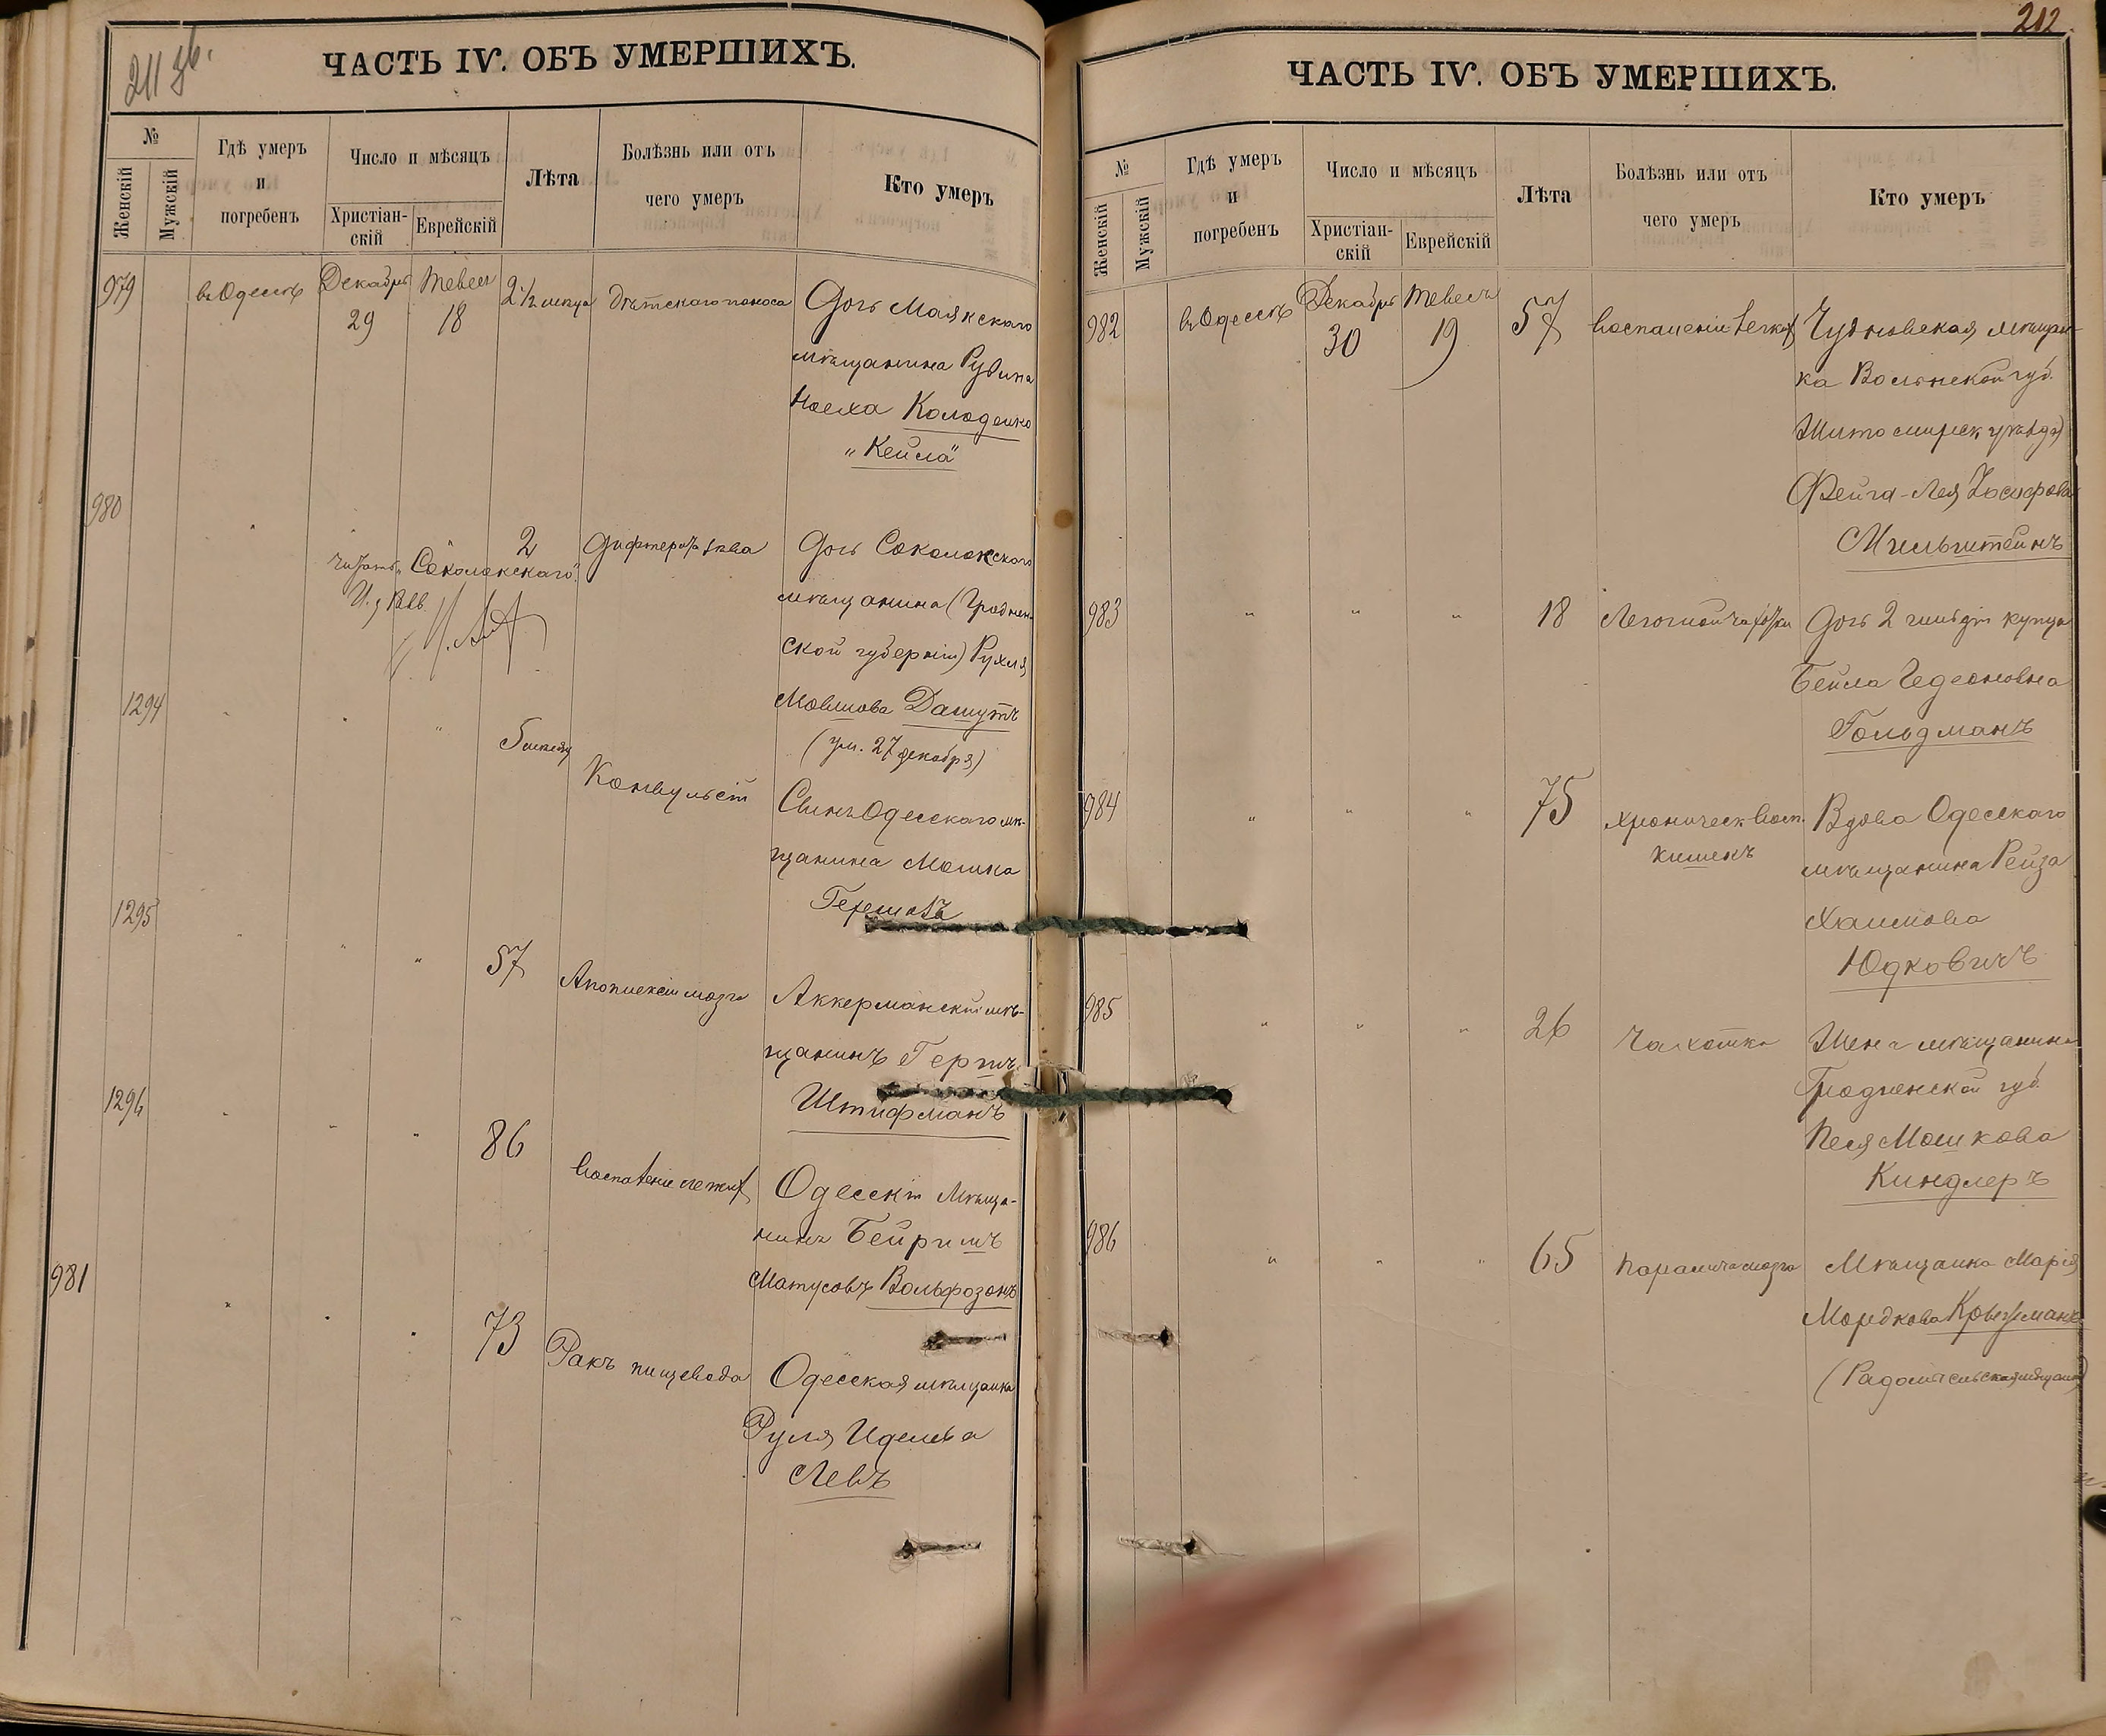 211 об.
ЧАСТЬ IV. ОБЪ УМЕРШИХЪ.
№
Женскій
Мужскій
Гдѣ умеръ
и
погребенъ
Число и мѣсяцъ
Христіан-
скій
Еврейскій
Лѣта
Болѣзнь или отъ
чего умеръ
Кто умеръ
979
въ Одессѣ
Декабрь
29
Тевесъ
18
2 1/2 месяца
Дѣтскаго поноса
Дочь Маякскаго
мѣщанина Рувина
Ноеха Колоденко
„Кейла“
980
2
Дифтерита зѣва
Дочь Соколокскаго
мѣщанина (Гроднен-
ской губерніи) Рухля
Мовшова Дашутъ
(ум. 27 декабря)
читать „Соколокскаго“
И. д. Равв.
1294
5 месяц
Конвульсіи
Сынъ Одесскаго мѣ-
щанина Мошка
Гершовъ
1295
57
Апоплексіи мозга
Аккерманскій мѣ-
щанинъ Герш
Штифманъ
1296
86
Воспаленіе легких
Одесскій мѣща-
нинъ Бейришъ
Матусовъ Вольфозонъ
981
73
Ракъ пищевода
Одесская мѣщанка
Руля Иделева
Левъ
212.
ЧАСТЬ IV. ОБЪ УМЕРШИХЪ.
№
Женскій
Мужскій
Гдѣ умеръ
и
погребенъ
Число и мѣсяцъ
Христіан-
скій
Еврейскій
Лѣта
Болѣзнь или отъ
чего умеръ
Кто умеръ
982
въ Одессѣ
Декабрь
30
Тевесъ
19
57
Воспаленіи легких
Чудновская мѣщан-
ка Волынской губ.
Житомирск уѣзда)
Фейга-Лея Іосифова
Мильштейнъ
983
„
„
„
18
Легочной чахотки
Дочь 2 гильдіи купца
Бейла Гедеоновна
Голодманъ
984
„
„
„
75
Хроническ восп.
кишекъ
Вдова Одесскаго
мѣщанина Рейза
Хаимова
Юдковичъ
985
„
„
„
26
Чахотка
Жена мѣщанина
Гродненской губ.
Песя Мошкова
Киндлеръ
986
„
„
„
65
Параличъ мозга
Мѣщанка Марія
Мордкова
(Радомысльская мѣщанка)